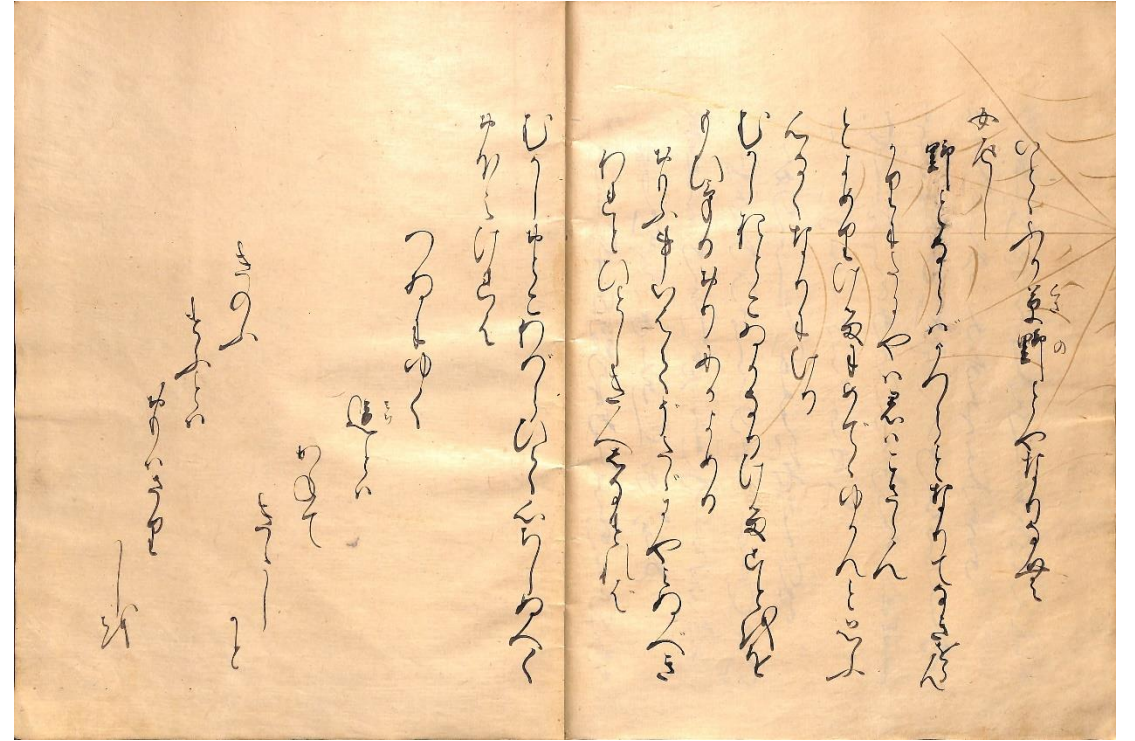 いとゝふか草野とやなりなむと
くさ の
女返し
野とならばうづらとなりてなきをらん
かりにだにやは君はこざらん
とよめりけるにめでゝゆかんと思ふ
心なくなりにけり
むかしおとこいかなりけることをお
もひけるおりにかよめる
おもふこといはでぞたゞにやみぬべき
われとひとしき人しなければ
むかしおとこわづらひて心ちしぬべく
おぼえければ
つゐにゆく
道とは
みち
かねて
きゝしかど
きのふ
けふとは
おもはざり
しを